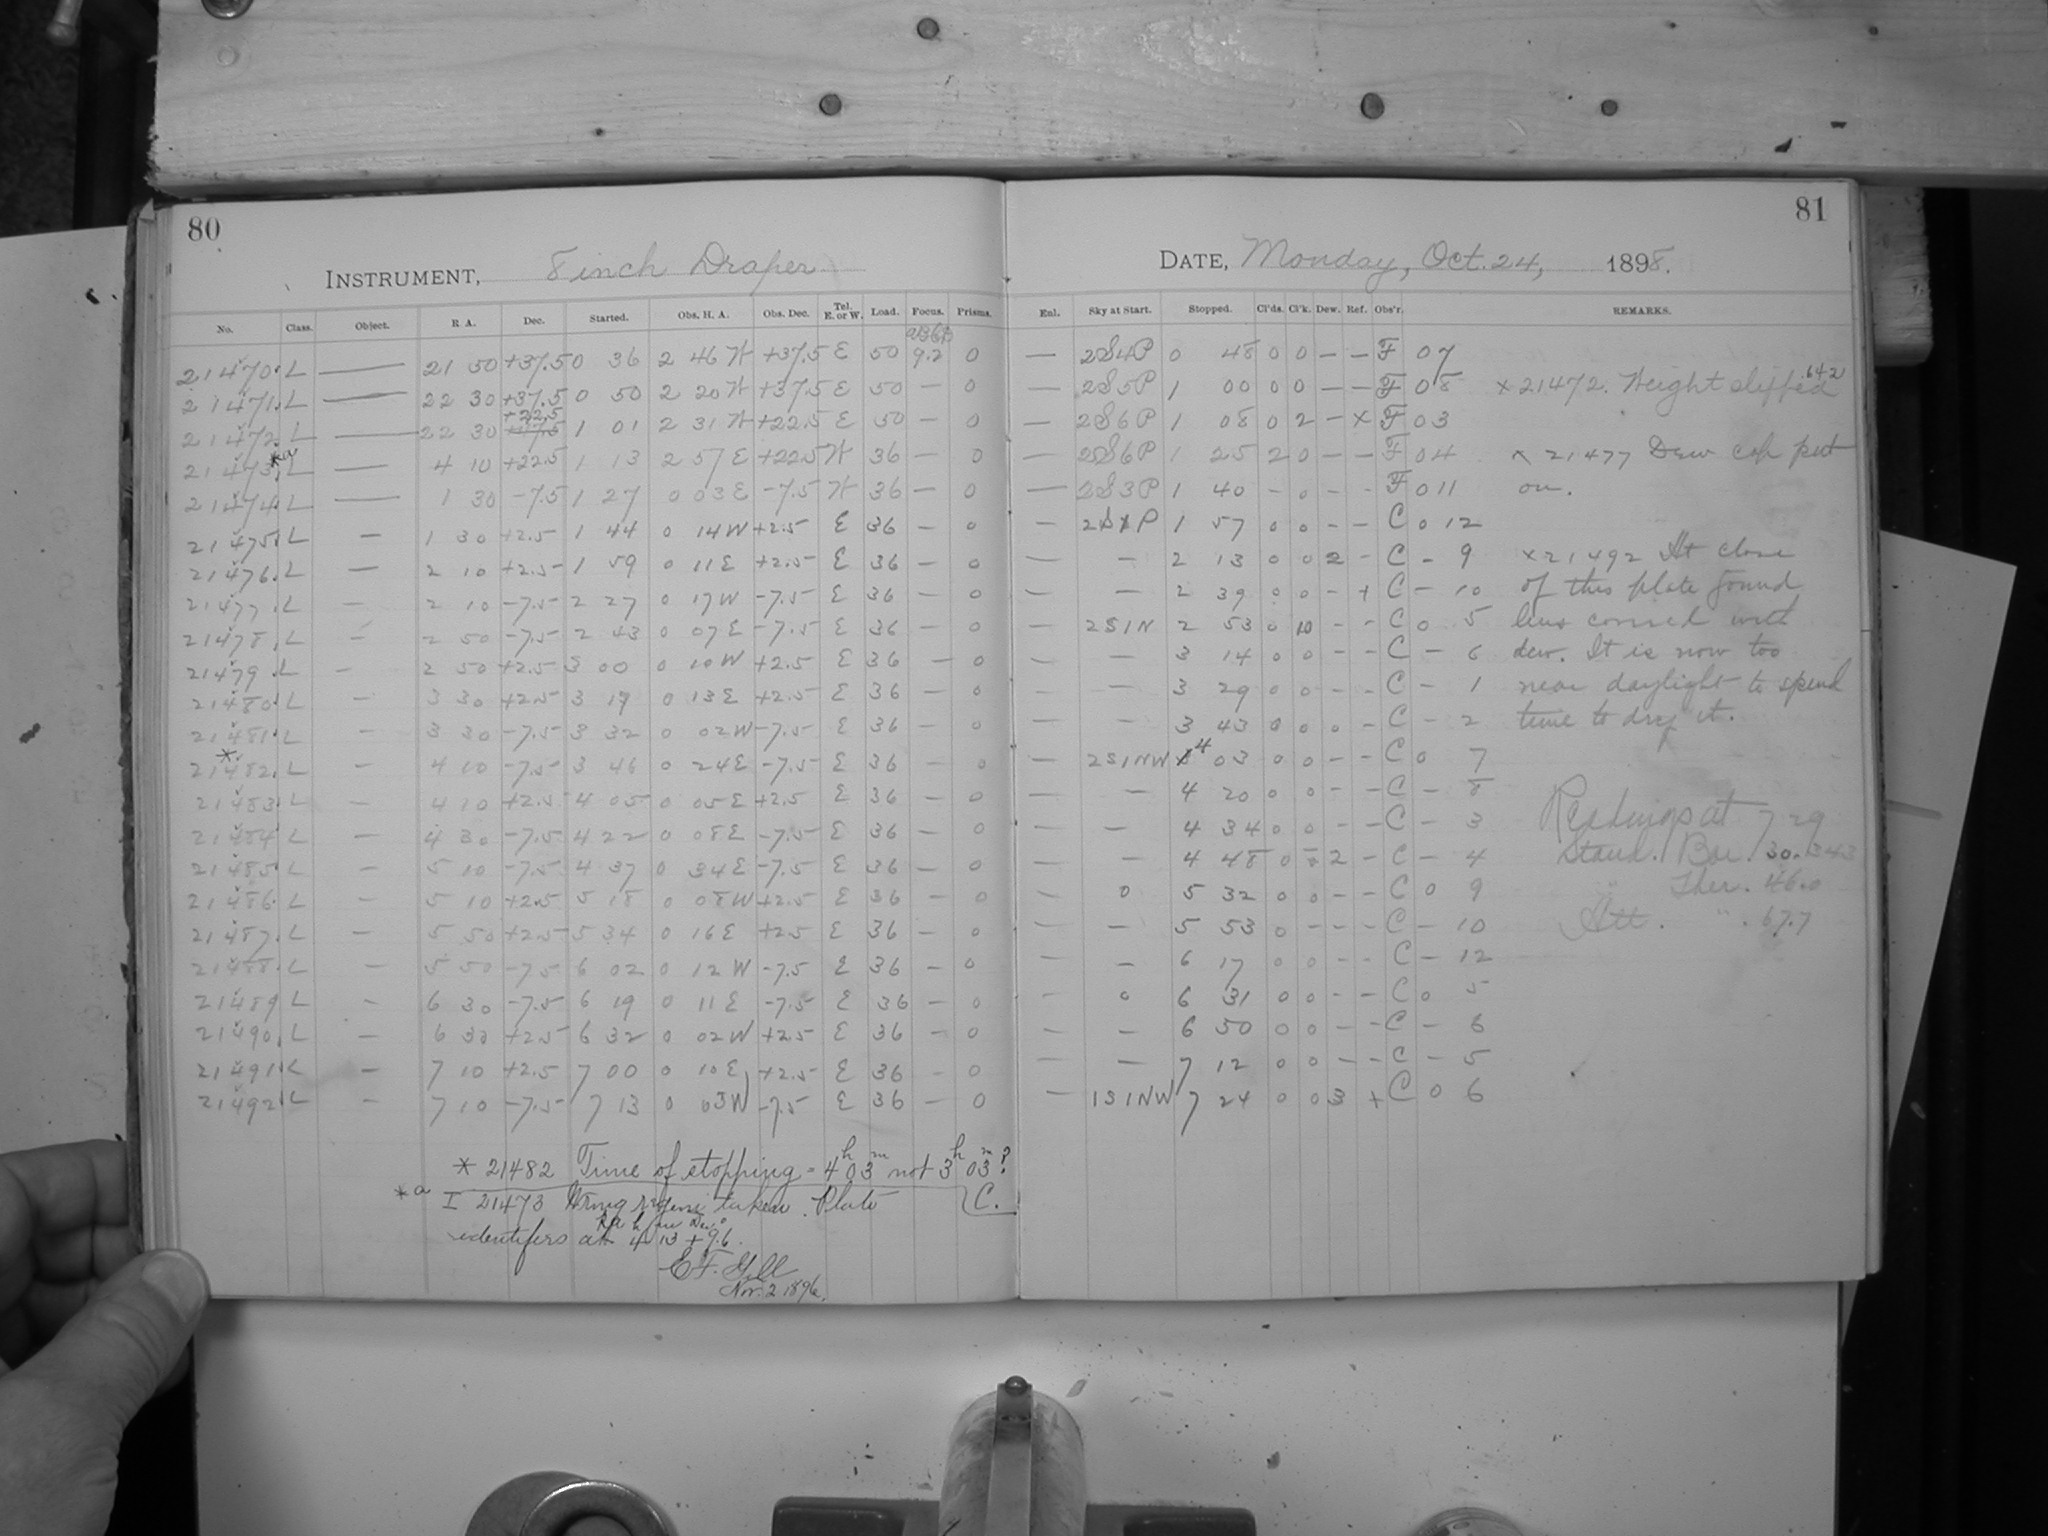 80
INSTRUMENT, 8 inch Draper
No. Class. Object. R A. Dec. Started. Obs. H. A. Obs. Dec. Tel. E. or W. Load. Focus. Prisms.
21470. L — 21 50 +37.5 0 36 2 46 W +37.5 E 50 9.2 0
21471. L — 22 30 +37.5 0 50 2 20 W +37.5 E 50 — 0
21472 L — 22 30 +22.5 1 01 2 31 W +22.5 E 50 — 0
*a
21473. L — 4 10 +22.5 1 13 2 57 E +22.5 W 36 — 0
21474. L — 1 30 -7.5 1 27 0 03 E -7.5 W 36 — 0
21475. L — 1 30 +2.5 1 44 0 14 W +2.5 E 36 — 0
21476. L — 2 10 +2.5 1 59 0 11 E +2.5 E 36 — 0
21477. L — 2 10 -7.5 2 27 0 17 W -7.5 E 36 — 0
21478. L — 2 50 -7.5 2 43 0 07 E -7.5 E 36 — 0
21479. L — 2 50 +2.5 3 00 0 10 W +2.5 E 36 — 0
21480. L — 3 30 +2.5 3 17 0 13 E +2.5 E 36 — 0
21481. L — 3 30 -7.5 3 32 0 02 W -7.5 E 36 — 0
*
21482. L — 4 10 -7.5 3 46 0 24 E -7.5 E 36 — 0
21483. L — 4 10 +2.5 4 05 0 05 E +2.5 E 36 — 0
21484. L — 4 30 -7.5 4 22 0 08 E -7.5 E 36 — 0
21485. L — 5 10 -7.5 4 37 0 34 E -7.5 E 36 — 0
21486. L — 5 10 +2.5 5 18 0 08 W +2.5 E 36 — 0
21487. L — 5 50 +2.5 5 34 0 16 E +2.5 E 36 — 0
21488. L — 5 50 -7.5 6 02 0 12 W -7.5 E 36 — 0
21489 L — 6 30 -7.5 6 19 0 11 E -7.5 E 36 — 0
21490. L — 6 30 +2.5 6 32 0 02 W +2.5 E 36 — 0
21491. L — 7 10 +2.5 7 00 0 10 E +2.5 E 36 — 0
21492. L — 7 10 -7.5 7 13 0 03 W -7.5 E 36 — 0
* 21482 Time of stopping = 4h 03m not 3h 03m?
C.
*a I 21473 Wrong region taken. Plate
RA h m Dec. °
identifies at 4 13 + 9.6.
E F. Gill
Nov. 2 1898.
81
DATE, Monday, Oct. 24, 1898.
Enl. Sky at Start. Stopped. Cl'ds. Cl'k. Dew. Ref. Obs'r. REMARKS.
— 2S4P 0 48 0 0 — — F 07
— 2S5P 1 00 0 0 — — F 08
— 2S6P 1 08 0 2 — x F 03
— 2S6P 1 25 2 0 — — F 04
— 2S3P 1 40 - 0 - - F 0 11
— 2S1P 1 57 0 0 - - C 0 12
— — 2 13 0 0 2 - C - 9
— — 2 39 0 0 - + C - 10
— 2S1N 2 53 0 10 - - C 0 5
— — 3 14 0 0 - - C - 6
— — 3 29 0 0 - - C - 1
— — 3 43 0 0 0 - C - 2
— 2S1NW 4 03 0 0 - - C 0 7
— — 4 20 0 0 - - C - 8
— — 4 34 0 0 - - C - 3
— — 4 48 0 0 2 - C - 4
— 0 5 32 0 0 - - C 0 9
— — 5 53 0 - - - C - 10
— — 6 17 0 0 - - C - 12
— 0 6 31 0 0 - - C 0 5
— — 6 50 0 0 - - C - 6
— — 7 12 0 0 - - C - 5
— 1S1NW 7 24 0 0 3 + C 0 6
.642
x 21472. Weight slipped
x 21477 Dew cap put
on.
x 21492 At close
of this plate found
lens covered with
dew. It is now too
near daylight to spend
time to dry it.
Readings at 7 29
Stand. Bar. 30.343
" Ther. 46.0
Att. " . 67.7